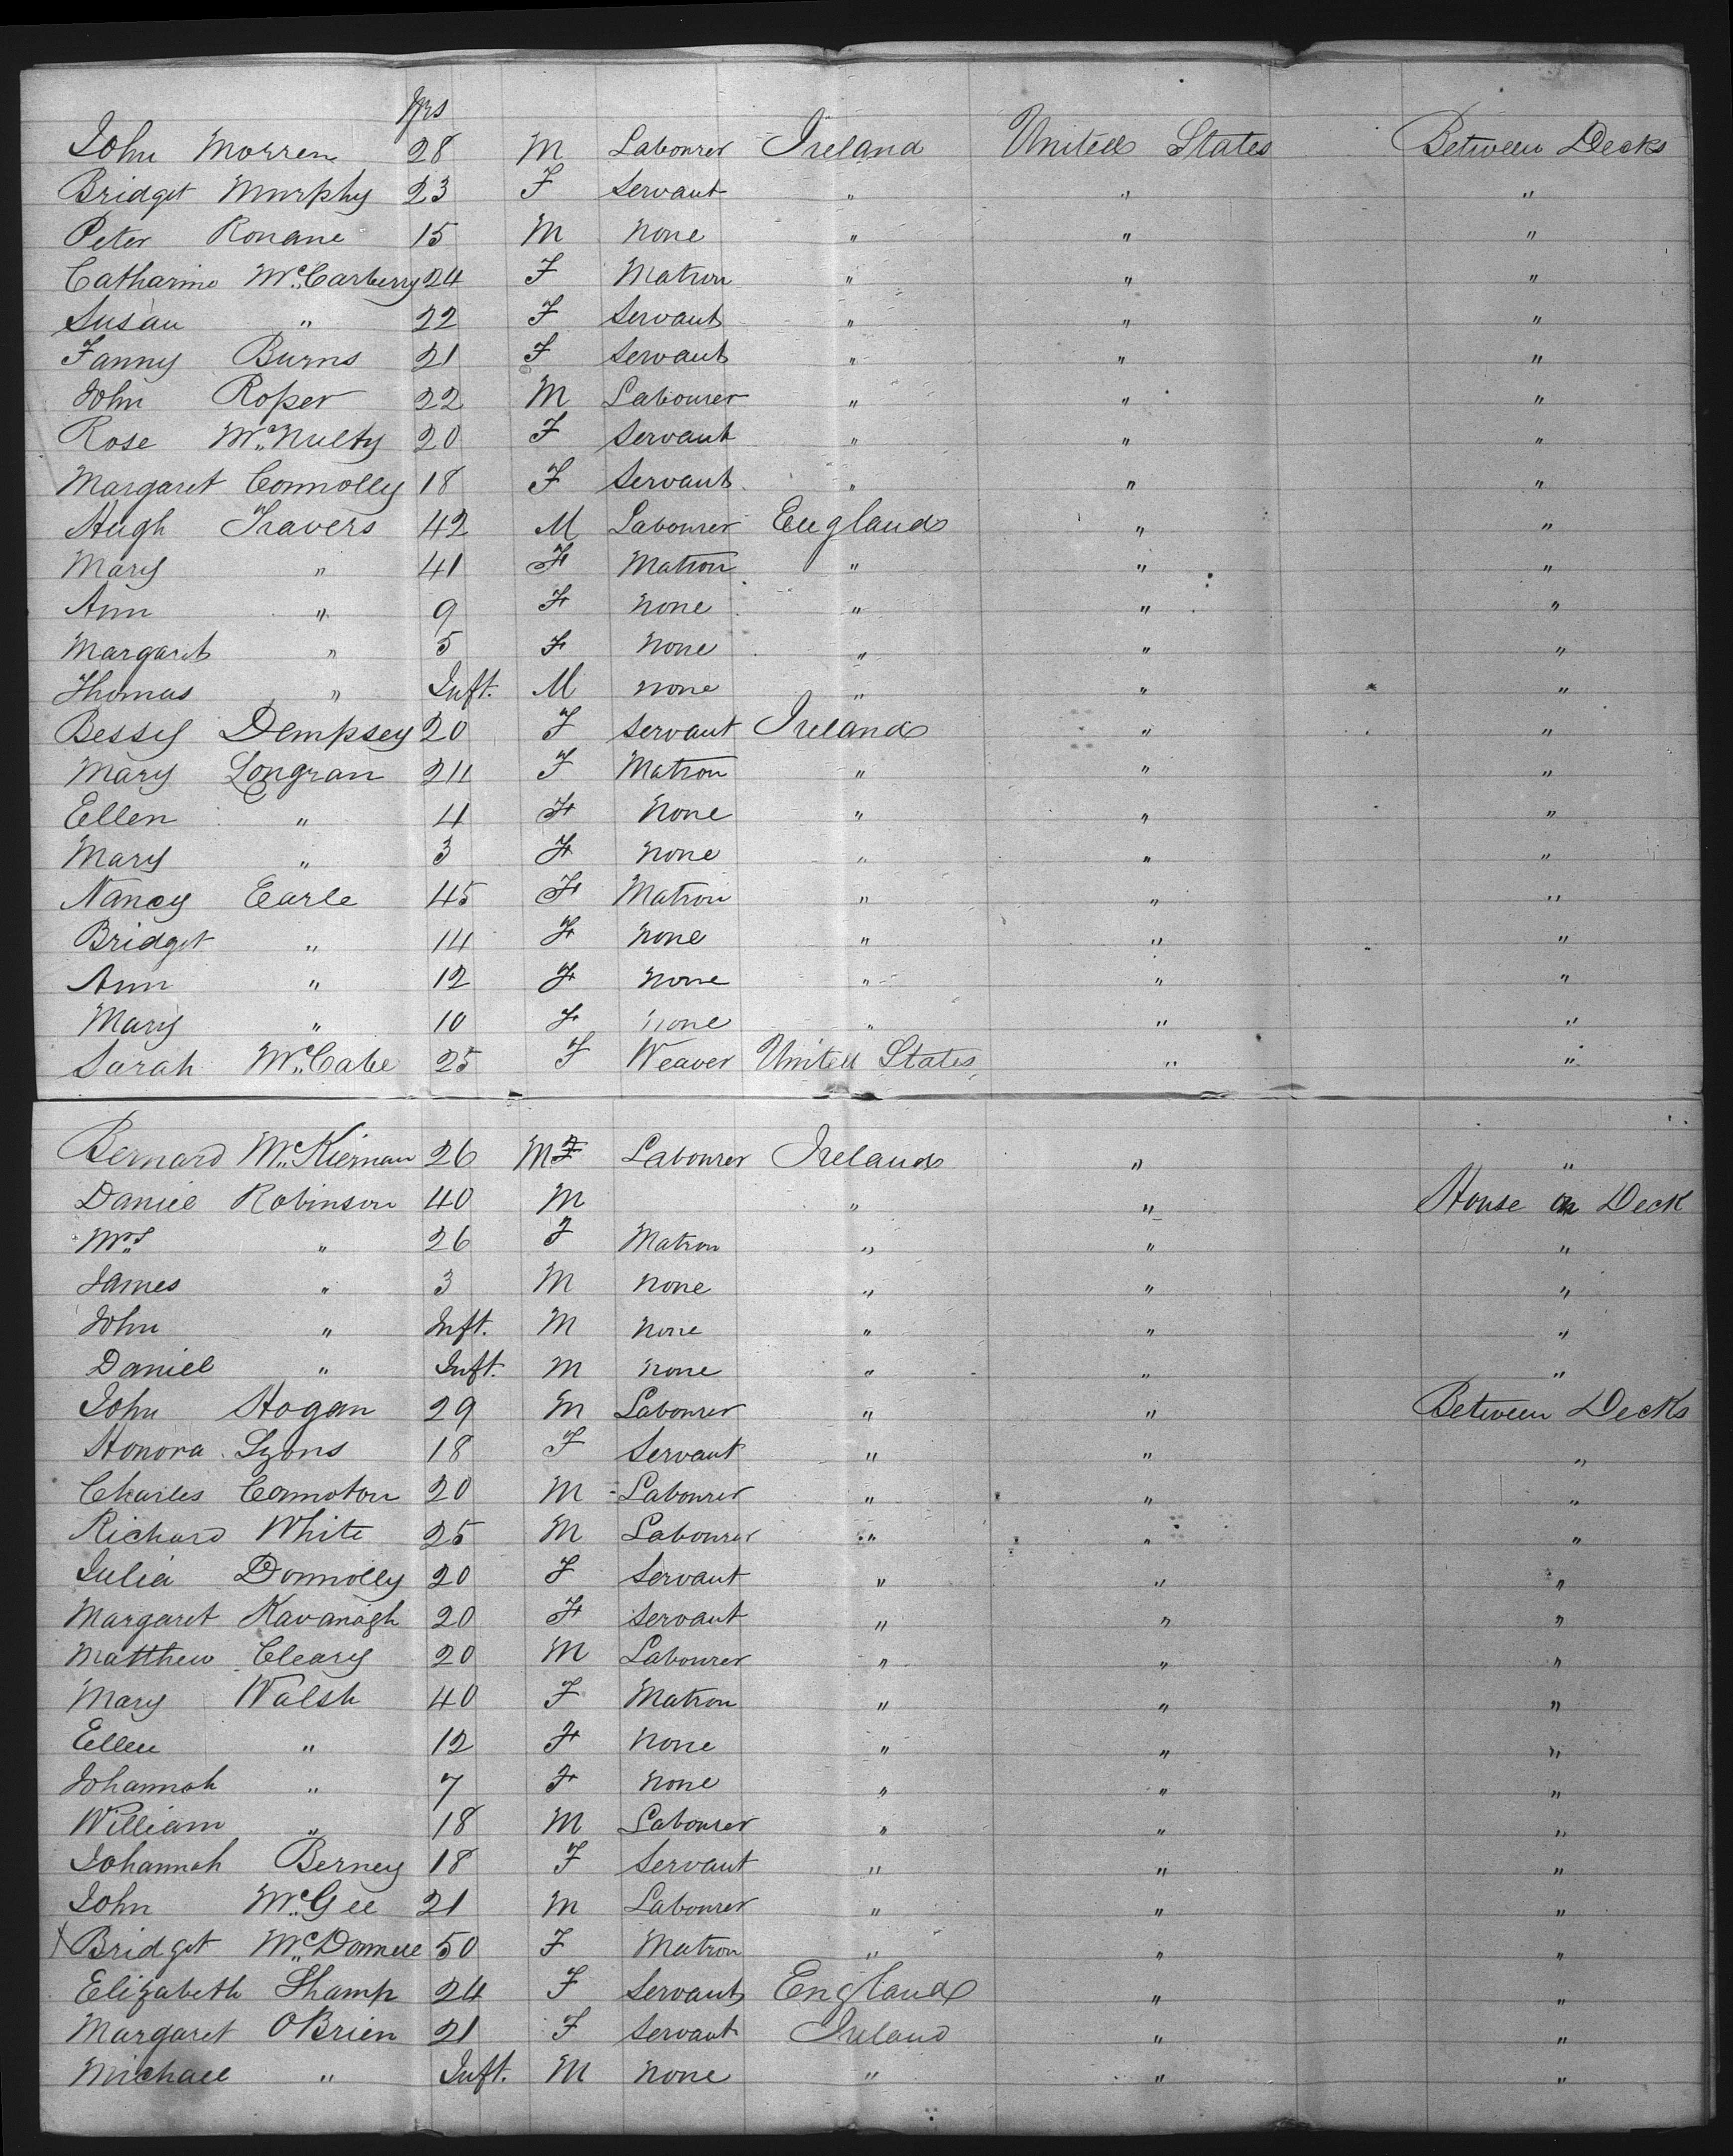 Yrs
John Morren 28 M Labourer Ireland United States Between Decks
Bridget Murphy 23 F Servant " " "
Peter Ronane 15 M None " " "
Catharine McCarberry 24 F Matron " " "
Susan " 22 F Servant " " "
Fanny Burns 21 F Servant " " "
John Roper 22 M Labourer " " "
Rose McNulty 20 F Servant " " "
Margaret Connolly 18 F Servant " " "
Hugh Travers 42 M Labourer England " "
Mary " 41 F Matron " " "
Ann " 9 F None " " "
Margaret " 5 F None " " "
Thomas " Inft. M none " " "
Bessy Dempsey 20 F Servant Ireland " "
Mary Longran 24 F Matron " " "
Ellen " 4 F None " " "
Mary " 3 F None " " "
Nancy Earle 45 F Matron " " "
Bridget " 14 F None " " "
Ann " 12 F None " " "
Mary " 10 F None " " "
Sarah McCabe 25 F Weaver United States " "
Bernard McKiernan 26 M Labourer Ireland " "
Daniel Robinson 40 M " " House on Deck
Mrs " 26 F Matron " " "
James " 3 M None " " "
John " Inft. M None " " "
Daniel " Inft. M None " " "
John Hogan 29 M Labourer " " Between Decks
Honora Lyons 18 F Servant " " "
Charles 20 M Labourer " " "
Richard White 25 M Labourer " " "
Julia Donnolly 20 F Servant " " "
Margaret Kavanagh 20 F Servant " " "
Matthew Cleary 20 M Labourer " " "
Mary Walsh 40 F Matron " " "
Ellen " 12 F None " " "
Johannah " 7 F None " " "
William " 18 M Labourer " " "
Johannah Berney 18 F Servant " " "
John McGee 21 M Labourer " " "
X Bridget McDonnell 50 F Matron " " "
Elizabeth Shamp 24 F Servant England " "
Margaret OBrien 21 F Servant Ireland " "
Michael " Inft. M None " " "